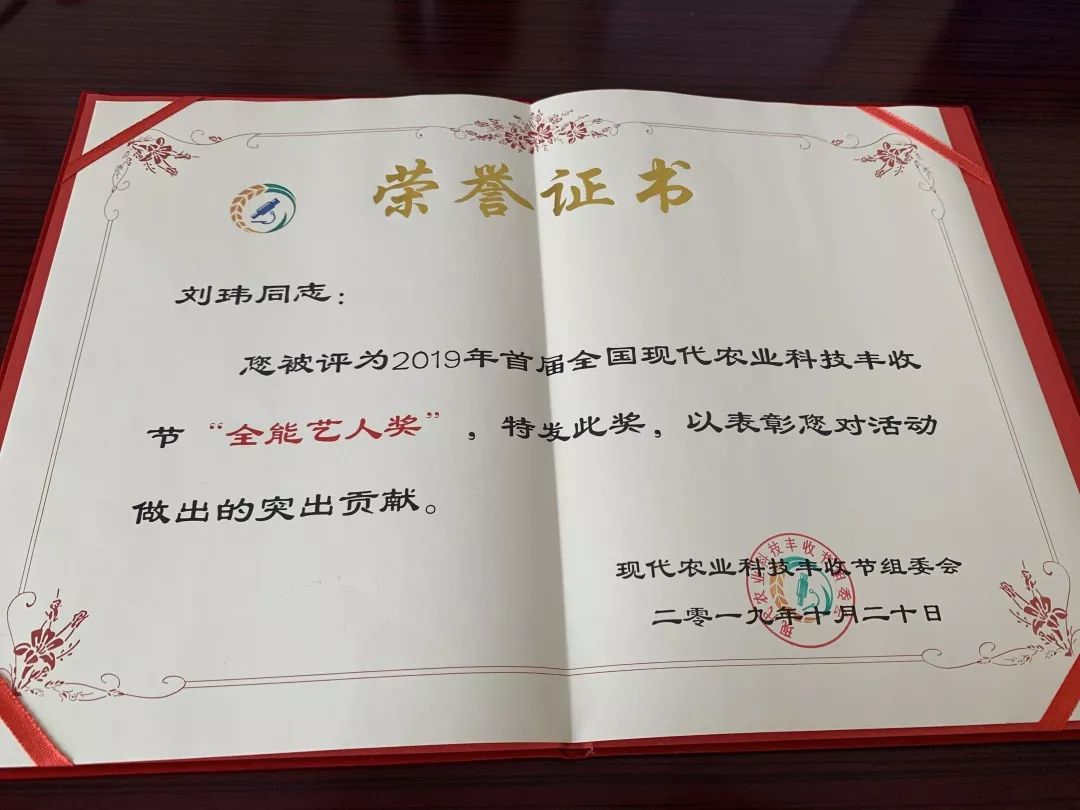 荣誉证书
刘玮同志：
您被评为2019年首届全国现代农业科技丰收
节“全能艺人奖”，特发此奖，以表彰您对活动
做出的突出贡献。
现代农业科技丰收节组委会
二零一九年十月二十日
现代农业科技丰收节组委会